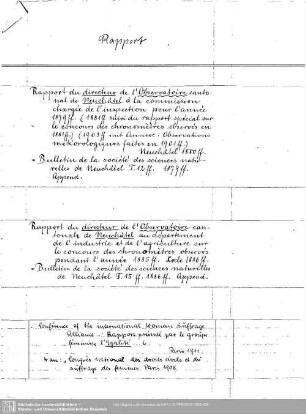 Rapport
Rapport du directeur de l'Observatoire canto
nal de Neuchâtel à la commission
chargée de l'inspection pour l'année
1879ff. (1881ff suivi du rapport spécial sur
le concours des chronomètres observés en
1881ff.) (1903ff mit Annexe: Observations
météorologiques faites en 1901ff.)
Neuchâtel 1880ff.
= Bulletin de la société des sciences natu-
relles de Neuchâtel T. 12ff. 1879ff.
Append.
Rapport du directeur de l'Observatoire can-
tonale de Neuchâtel au département
de l'industrie et de l'agriculture sur
le concours des chronomètres observés
pendant l'année 1885ff. Locle 1886ff.
= Bulletin de la société des sciences naturelles
de Neuchâtel T. 15ff. 1886ff. Append.
Conférence of the international Woman Suffrage
Alliance: Rapport présenté par le groupe
féministe l'Egalité. 6.
Paris 1911.
4 au: Congrès national des droits civils et du
suffrage des femmes Paris 1908.